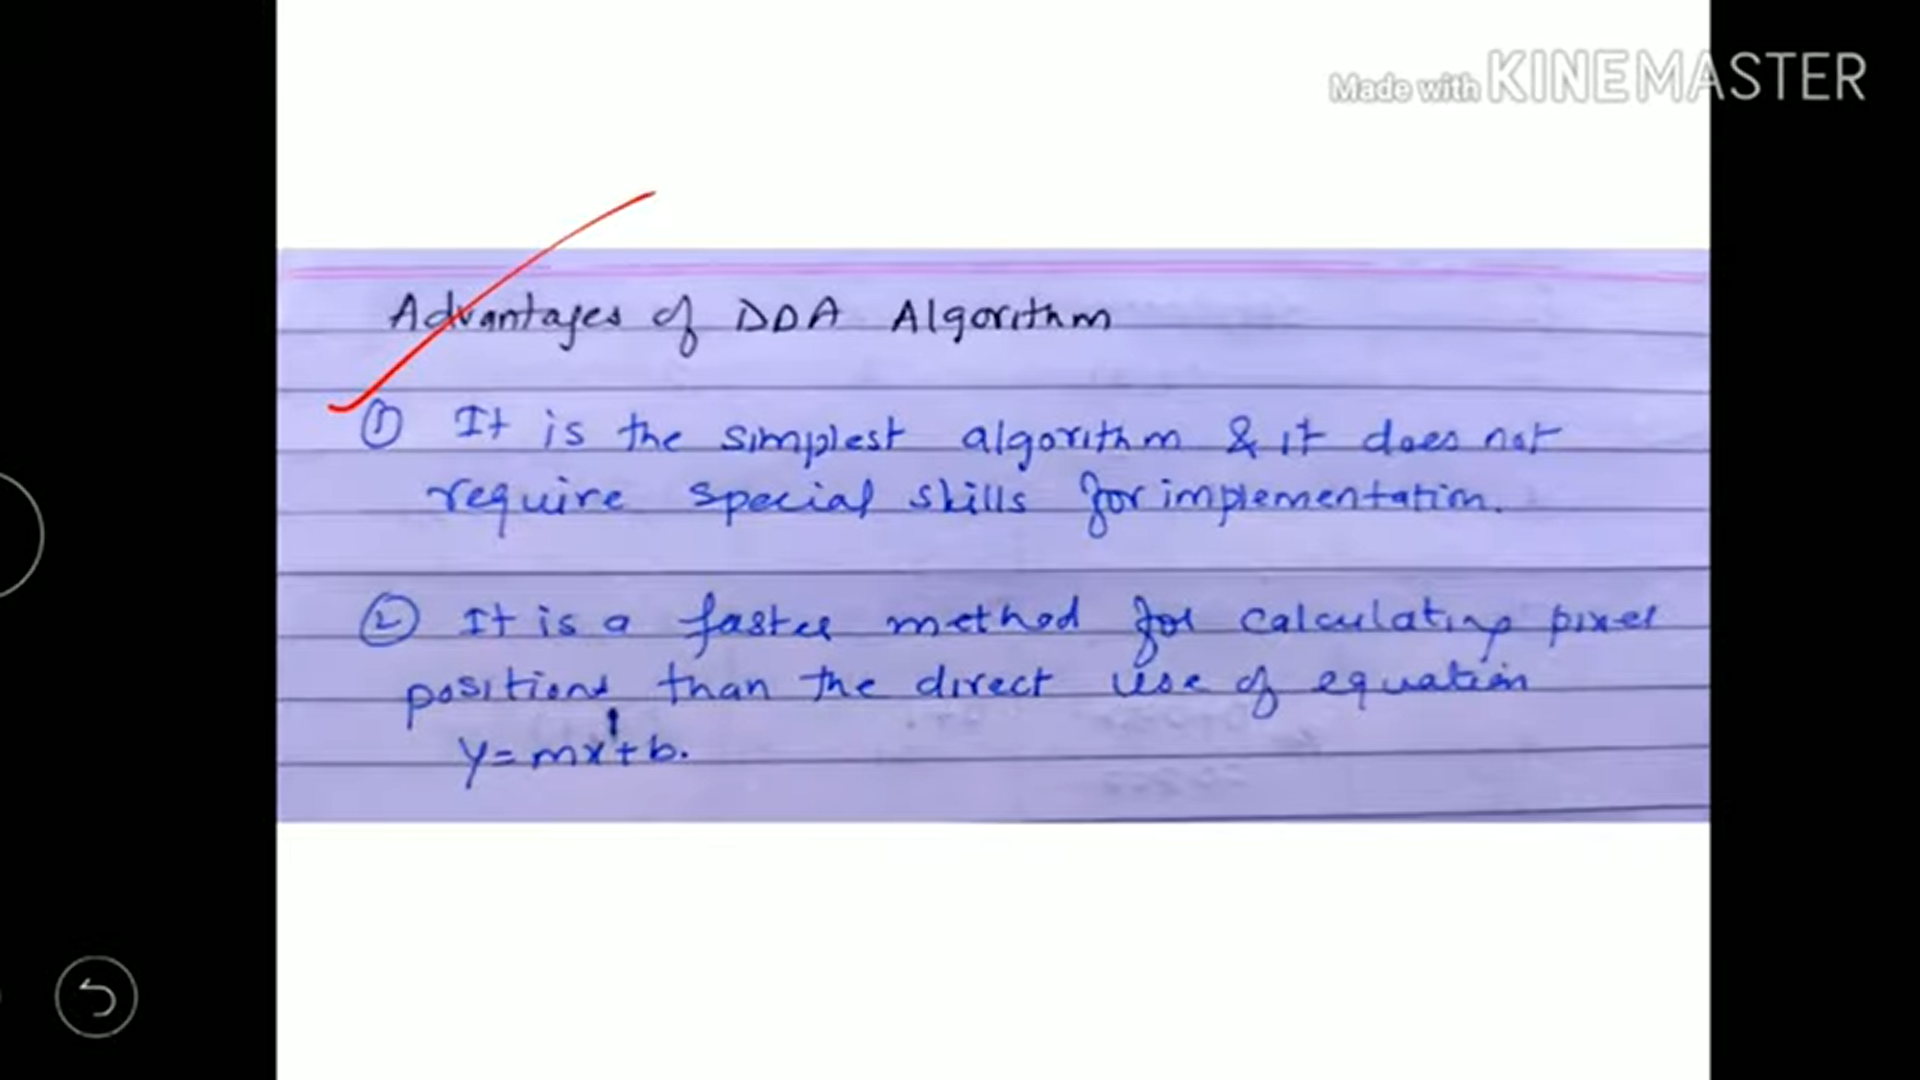 Made with KINEMASTER
Advantages of DDA Algorithm
① It is the simplest algorithm & it does not
require special skills for implementation.
② It is a faster method for calculating pixel
positions than the direct use of equation
y=mx+b.